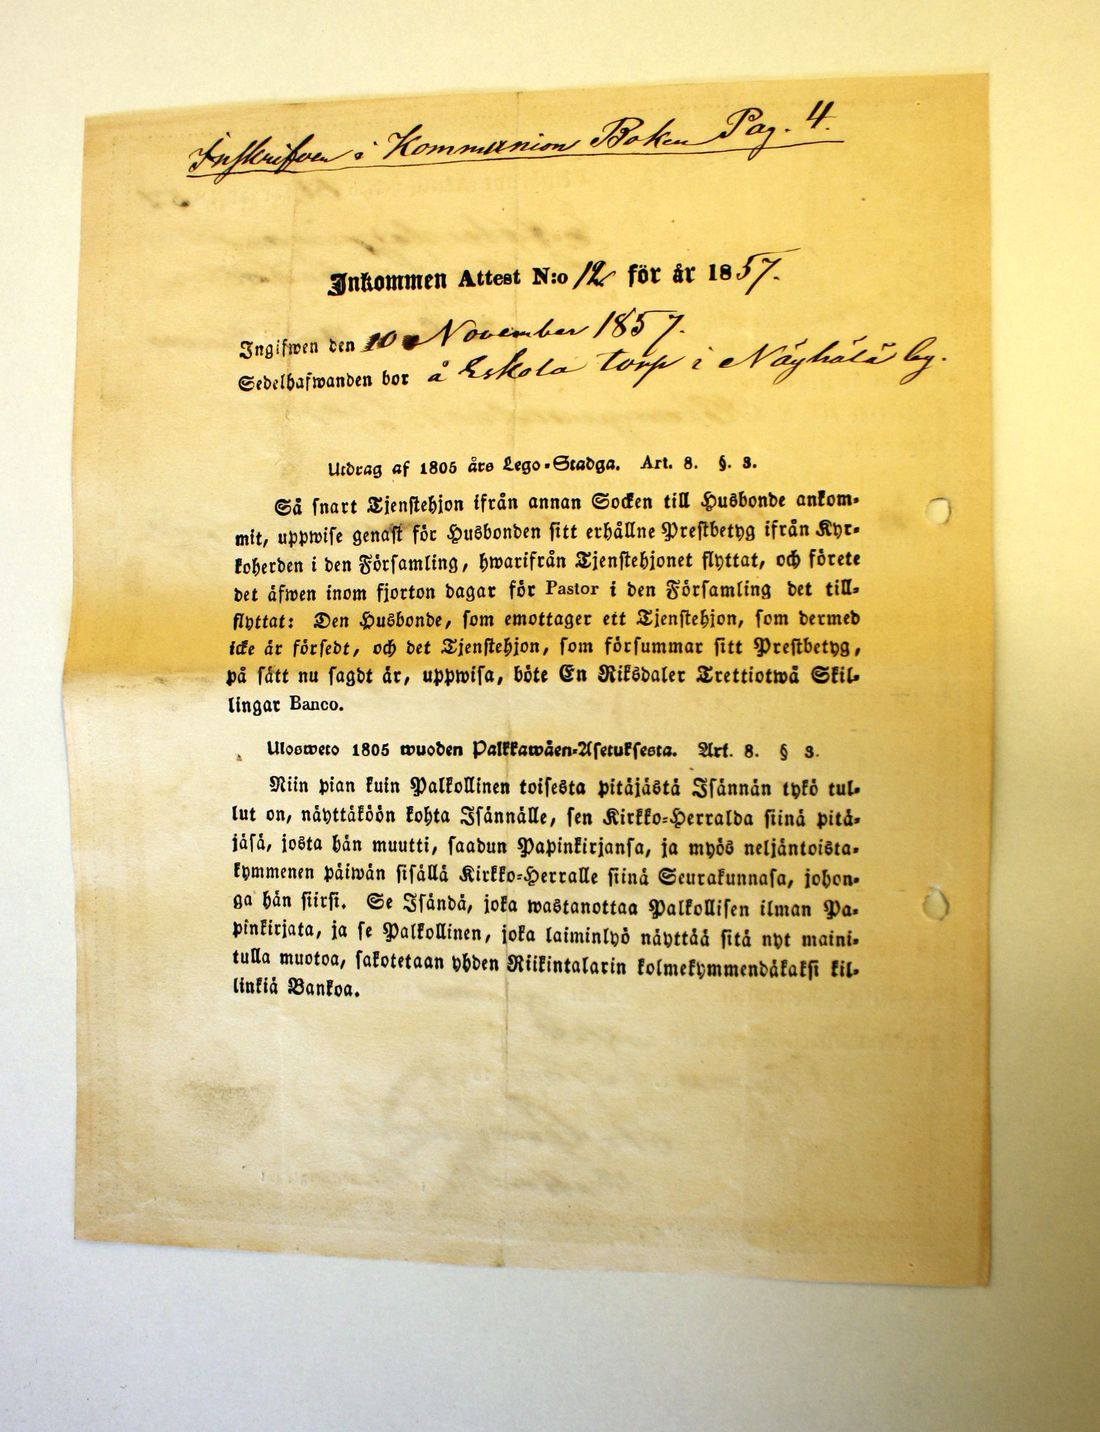 Inskrifven i Kommunion Boken Pag. 4.
Inkommen Attest N:o 12 för år 1857.
Ingifwen den 10 November 1857.
Sedelhafwanden bor å Eskola torp i Näyhälä by.
Utdrag af 1805 års Lego-Stadga. Art. 8. §. 3.
Så snart Tjenstehjon ifrån annan Socken till Husbonde ankom-
mit, uppwise genast för Husbonden sitt erhållne Prestbetyg ifrån Kyr-
koherden i den Församling, hwarifrån Tjenstehjonet flyttat, och förete
det äfwen inom fjorton dagar för Pastor i den Församling det till-
flyttat: Den Husbonde, som emottager ett Tjenstehjon, som dermed
icke är försedt, och det Tjenstehjon, som försummar sitt Prestbetyg,
på sätt nu sagdt är, uppwisa, böte En Riksdaler Trettiotwå Skil-
lingar Banco.
Ulosweto 1805 wuoden Palkkawäen-Asetuksesta. Art. 8. § 3.
Niin pian kuin Palkollinen toisesta pitäjästä Isännän tykö tul-
lut on, näyttäköön kohta Isännälle, sen Kirkko-Herralda siinä pitä-
jäsä, josta hän muutti, saadun Papinkirjansa, ja myös neljäntoista-
kymmenen päiwän sisällä Kirkko-Herralle siinä Seurakunnasa, johon-
ga hän siirsi. Se Isändä, joka wastanottaa Palkollisen ilman Pa-
pinkirjata, ja se Palkollinen, joka laiminlyö näyttää sitä nyt maini-
tulla muotoa, sakotetaan yhden Riikintalarin kolmekymmendäkaksi kil-
linkiä Bankoa.